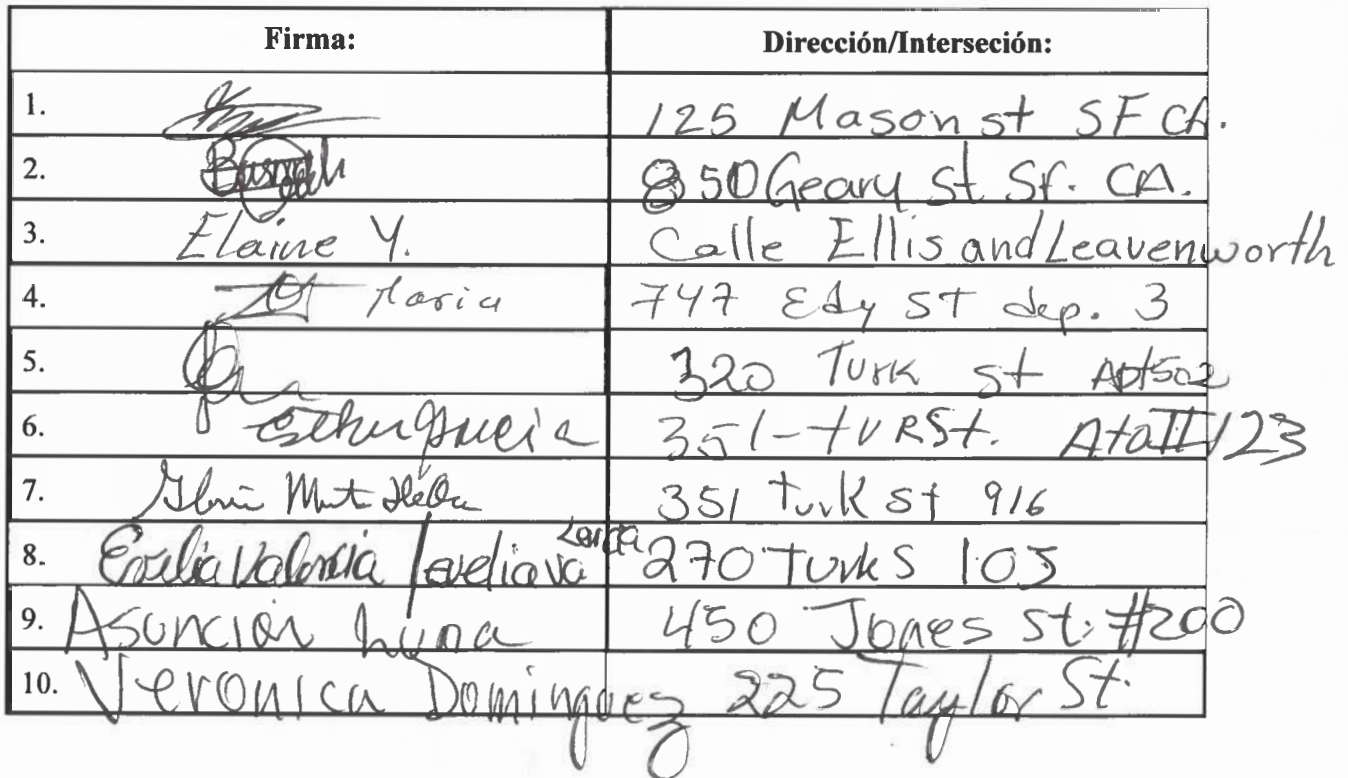 Firma: Dirección/Interseción:
1. 125 Mason st SF CA.
2. 850 Geary St. Sf. CA.
3. Elaine Y. Calle Ellis and Leavenworth
4. Maria 747 Edy ST dep. 3
5. 320 Turk st Apt502
6. Esther Garcia 351-tURSt. 123
7. 351 turk st 916
8. Evelia Valencia 270 Turk S 105
9. Asuncion Luna 450 Jones St. #200
10. Veronica Dominguez 225 Taylor St.